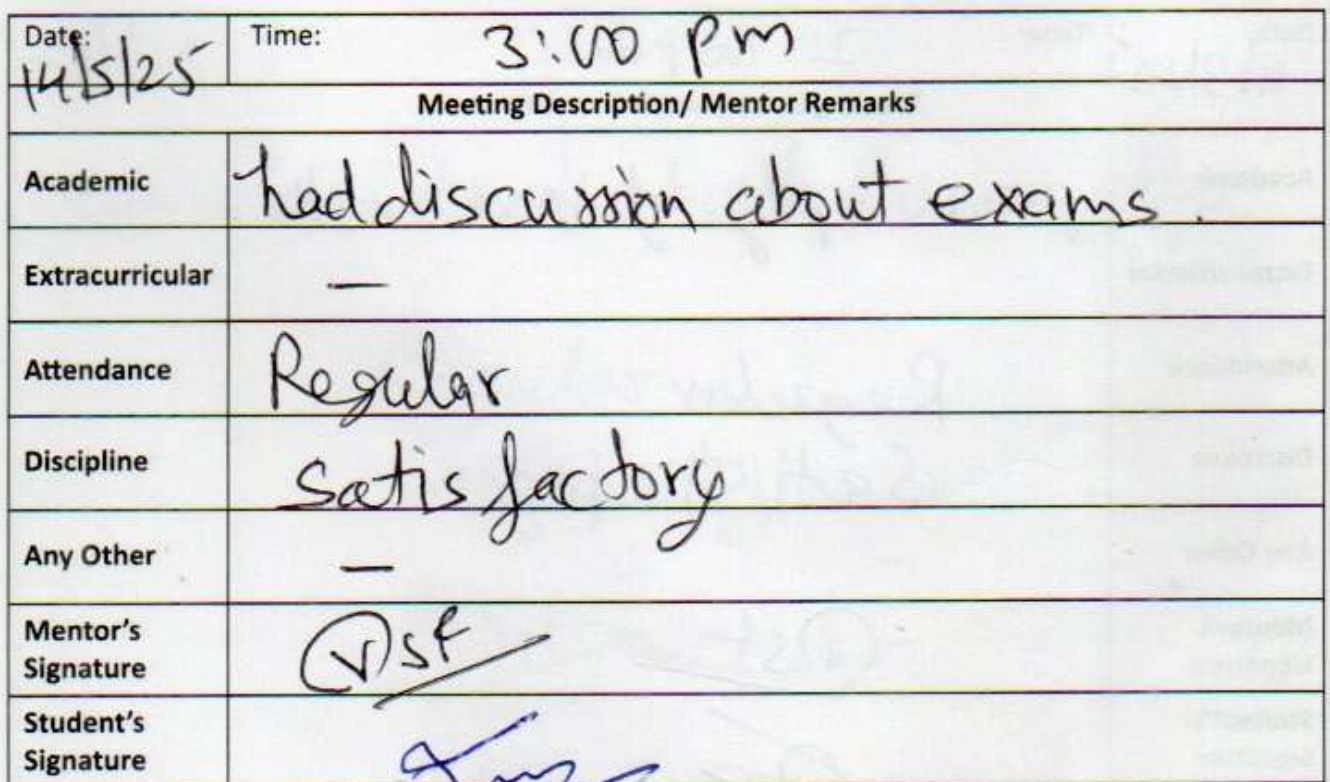 Date: Time: 3:00 pm
14/5/25
Meeting Description/ Mentor Remarks
Academic had discussion about exams.
Extracurricular –
Attendance Regular
Discipline Satisfactory
Any Other –
Mentor's
Signature
Student's
Signature